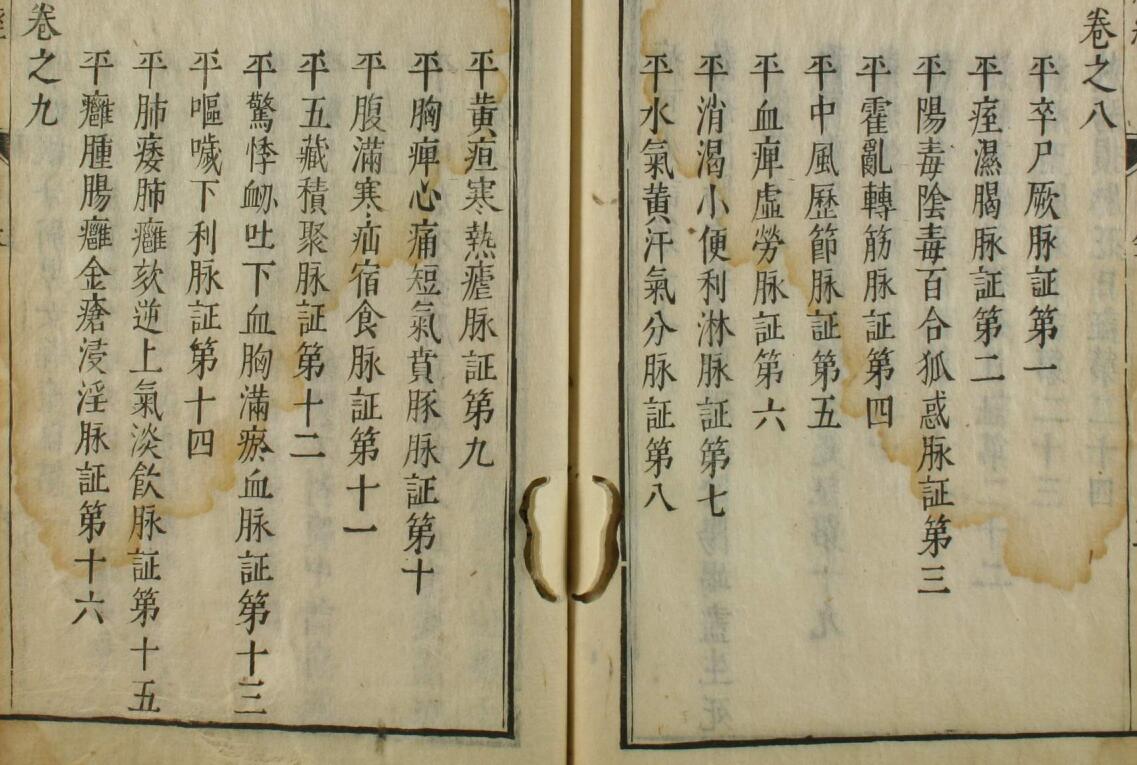 卷之八
平卒尸厥脉証第一
平痓濕暍脉証第二
平陽毒陰毒百合狐惑脉証第三
平霍亂轉筋脉証第四
平中風歷節脉証第五
平血痺虛勞脉証第六
平消渴小便利淋脉証第七
平水氣黄汗氣分脉証第八
平黄疸寒熱瘧脉証第九
平胸痺心痛短氣賁豚脉証第十
平腹滿寒疝宿食脉証第十一
平五藏積聚脉証第十二
平驚悸衂吐下血胸滿瘀血脉証第十三
平嘔噦下利脉証第十四
平肺痿肺癰欬逆上氣淡飲脉証第十五
平癰腫腸癰金瘡浸淫脉証第十六
卷之九